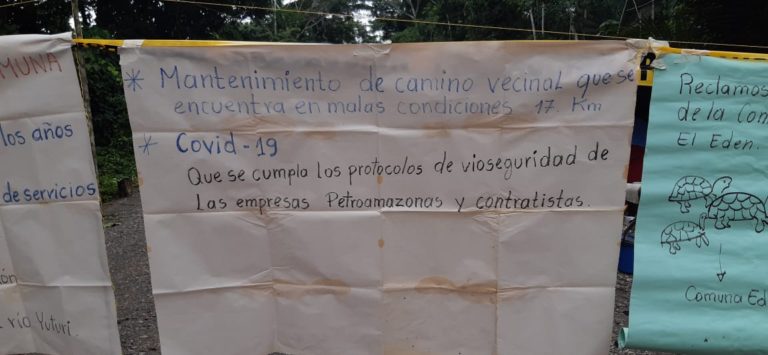 MUNA
los años
de servicios
río Yuturi.
* Mantenimiento de camino vecinal que se
encuentra en malas condiciones 17. Km
* Covid-19
Que se cumpla los protocolos de vioseguridad de
Las empresas Petroamazonas y contratistas.
Reclamos
de la Com
El Eden.
Comuna Ed